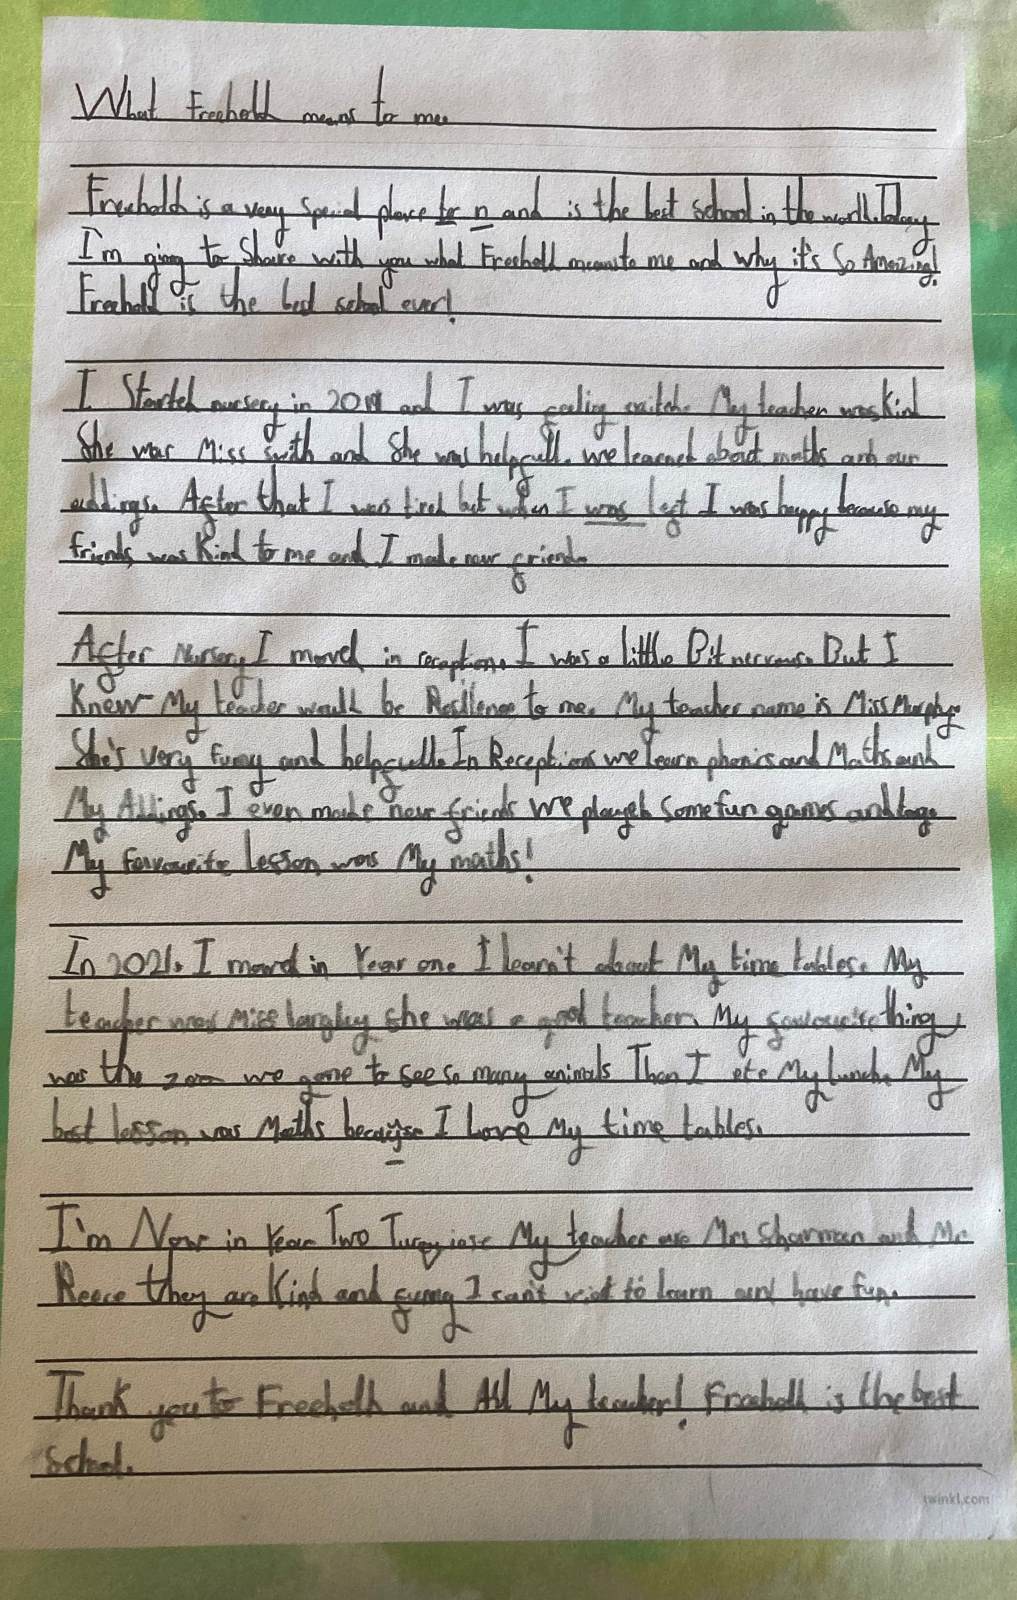 What Freehold means to me.
Freehold is a very special place to n and is the best school in the world. Today
I'm going to share with you what Freehold means to me and why it's so Amazing!
Freehold is the best school ever!
I Started nursery in 2019 and I was feeling excited. My teacher was kind
She was Miss Smith and She was helpfull. we learned about maths and our
addings. After that I was tired but when I was left I was happy because my
friends was Kind to me and I made new friends.
After Nursery I moved in reception. I was a little Bit nervous. But I
Knew My teacher would be Resilence to me. My teacher name is Miss Murphy.
She's very funny and helpfull. In Receptions we learn phonics and Maths and
My Addings. I even made new friends we played some fun games and
My favourite lesson was My maths!
In 2021. I moved in Year one I learn't about My time tables. My
teacher was Miss langley she was a good teacher. My favourite thing
was the zoo we gone to see so many animals Than I ate My lunch. My
best lesson was Maths because I Love My time tables.
I'm Now in Year Two My teacher are Mrs Sharman and Mr
Reece they are Kind and funny I can't wait to learn and have fun.
Thank you to Freehold and All My teacher! Freehold is the best
School.
twinkl.com